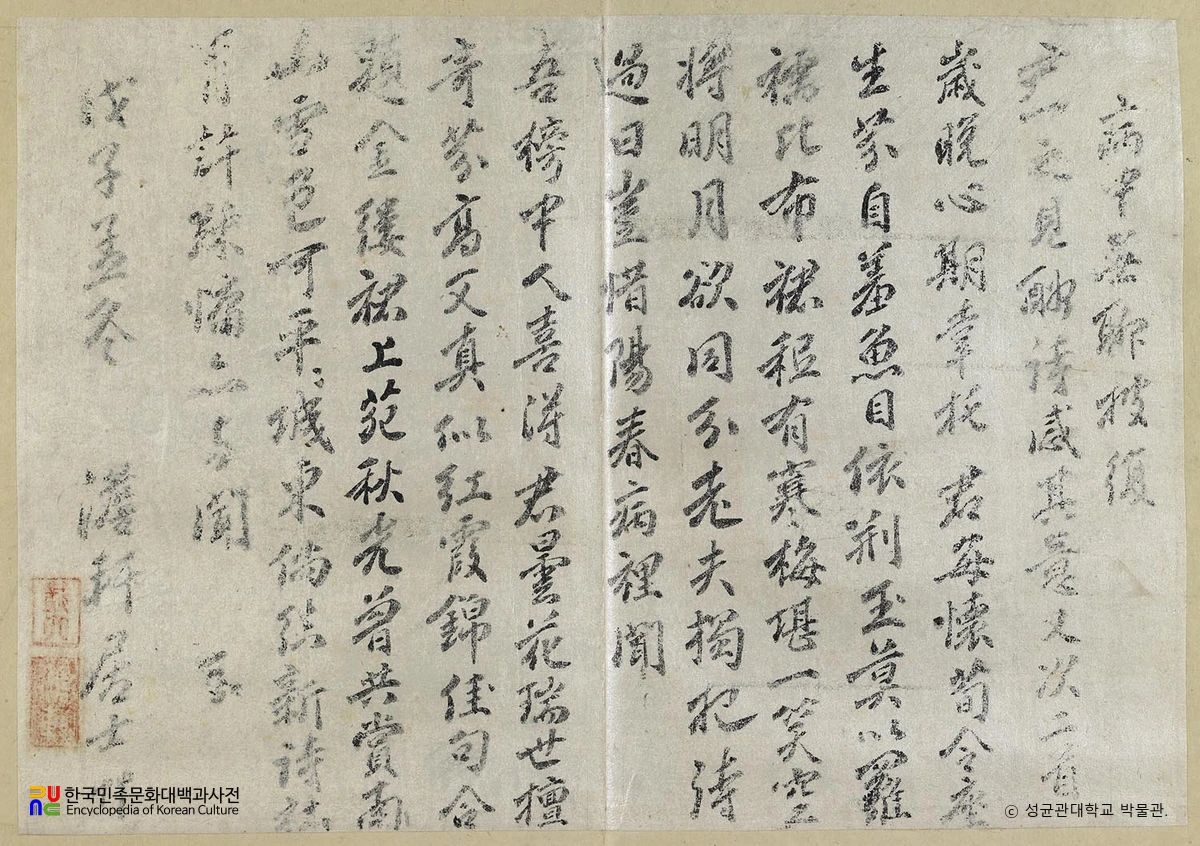 病中無聊披復
君一之見酬詩感其意又次二首
歲晩心期幸托君每懷荀令座
生芬自羞魚目依荊玉莫以羅
襦比布裙秪有寒梅堪一笑空
將明月欲同分老夫獨犯詩
過日豈惜陽春病裡聞
吾榜中人喜得君曇花瑞世擅
奇芬高文眞似紅霞錦佳句合
題金縷裙上苑秋光曾共賞南
山雪色可平城東倘結新詩社
肯許踈慵亦与聞
戊子孟冬 澹軒居士
한국민족문화대백과사전
Encyclopedia of Korean Culture
© 성균관대학교 박물관.